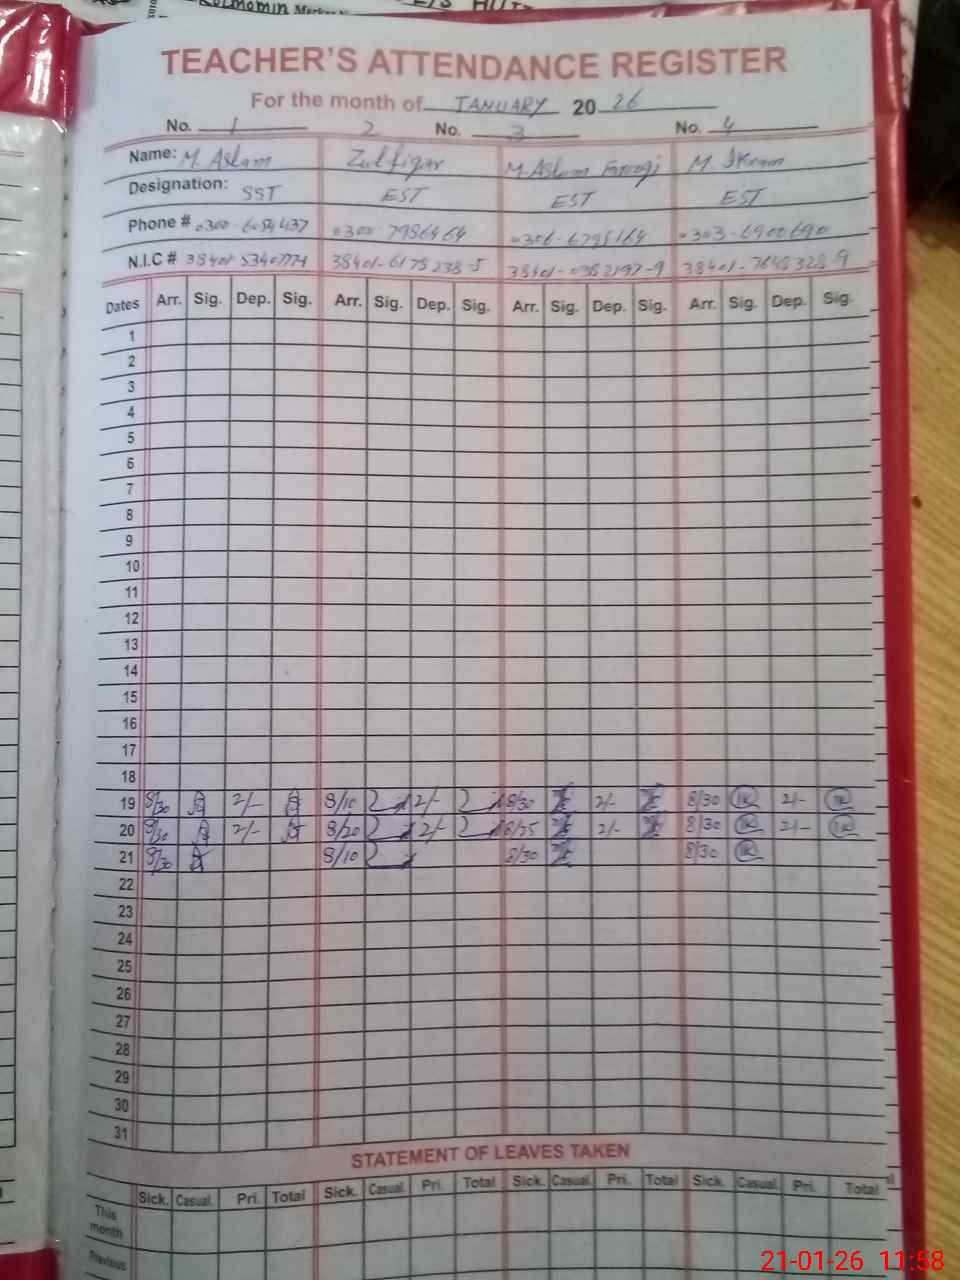 TEACHER'S ATTENDANCE REGISTER
For the month of JANUARY 20 26
No. 1 2 No. 3 No. 4
Name: M. Aslam Zulfiqar M. Aslam Farooqi M. Ikram
Designation: SST EST EST EST
Phone # 0300-6054437 0300-7986464 0306-6795164 0303-6900690
N.I.C # 38401-6175238-5 38401-0382197-9 38401-7648328-9
Dates Arr. Sig. Dep. Sig. Arr. Sig. Dep. Sig. Arr. Sig. Dep. Sig. Arr. Sig. Dep. Sig.
1
2
3
4
5
6
7
8
9
10
11
12
13
14
15
16
17
18
19 8/30 2/- 8/10 2/- 8/30 2/- 8/30 2/-
20 8/30 2/- 8/20 2/- 8/25 2/- 8/30 2/-
21 8/30 8/10 8/30 8/30
22
23
24
25
26
27
28
29
30
31
STATEMENT OF LEAVES TAKEN
Sick. Casual. Pri. Total Sick. Casual. Pri. Total Sick. Casual. Pri. Total Sick. Casual. Pri. Total
This month
Previous
21-01-26 11:58